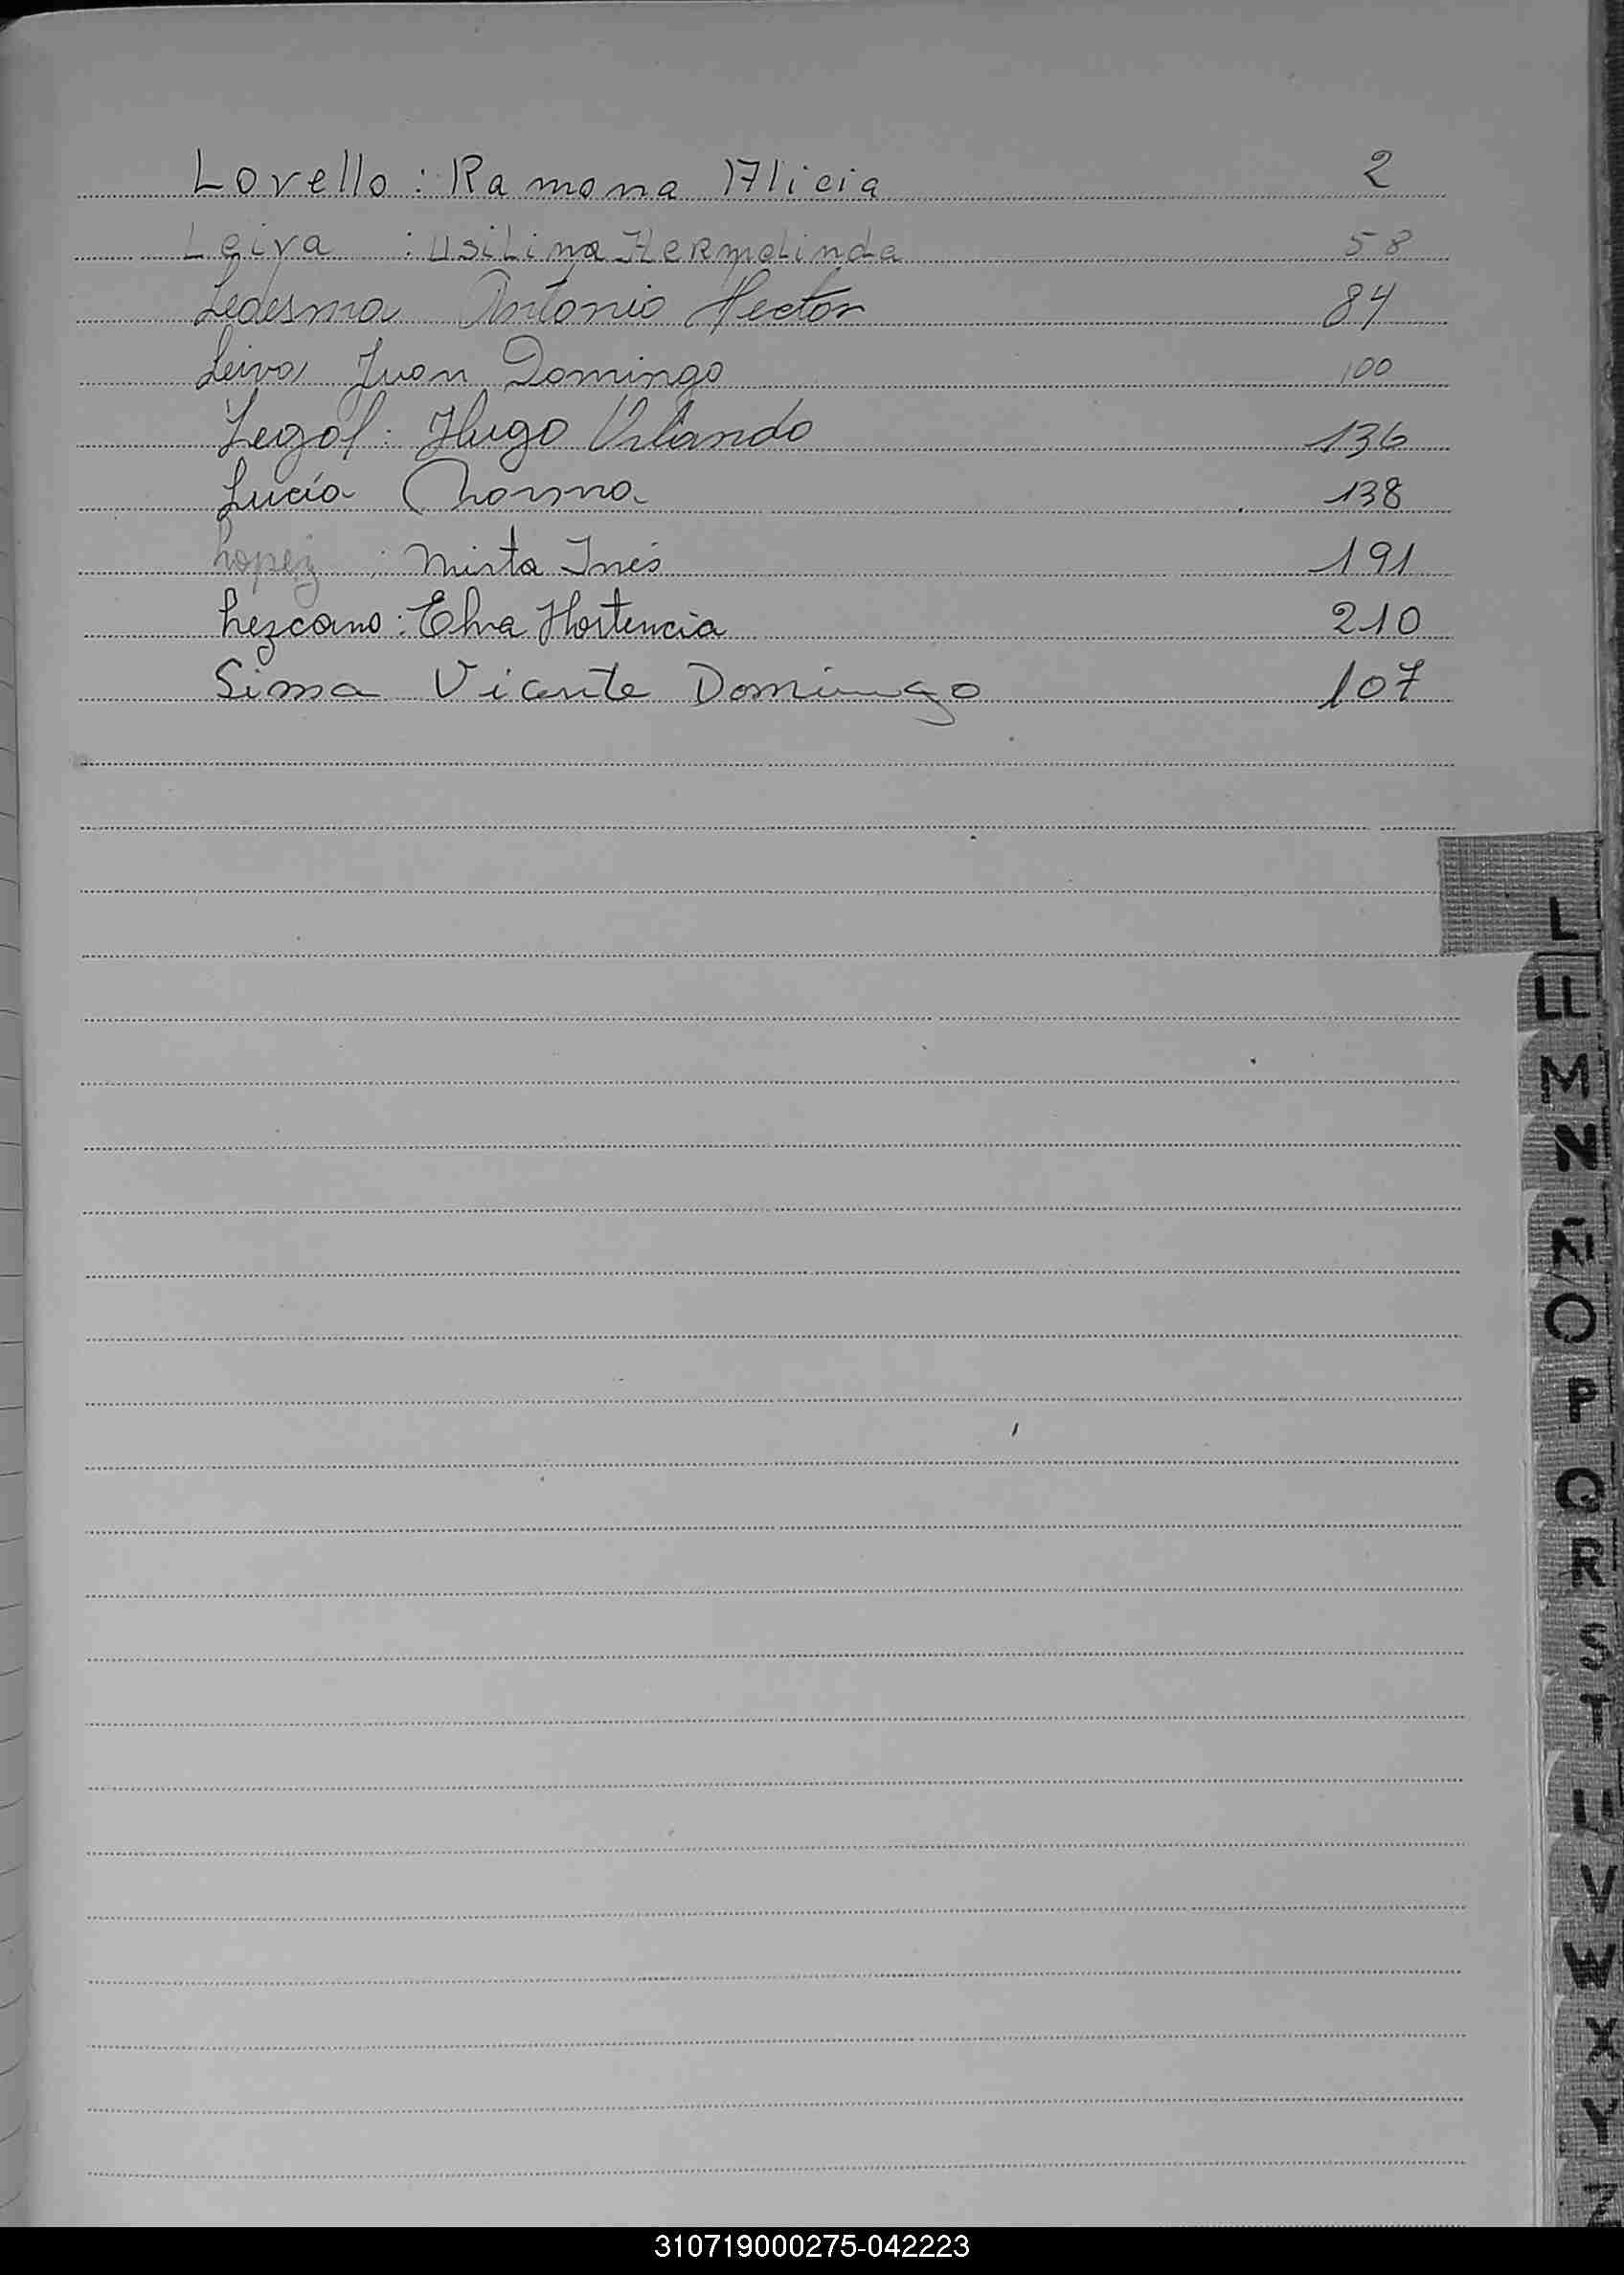 Lovello : Ramona Alicia 2
Leiva : Usilina Hermelinda 58
Ledesma Antonio Hector 84
Leiva Juan Domingo 100
Legal : Hugo Orlando 136
Lucía Norma 138
Lopez : Mirta Inés 191
Lezcano : Elva Hortencia 210
Sima Vicente Domingo 107
L
LL
M
N
Ñ
O
P
Q
R
S
T
U
V
W
X
Y
Z
310719000275-042223